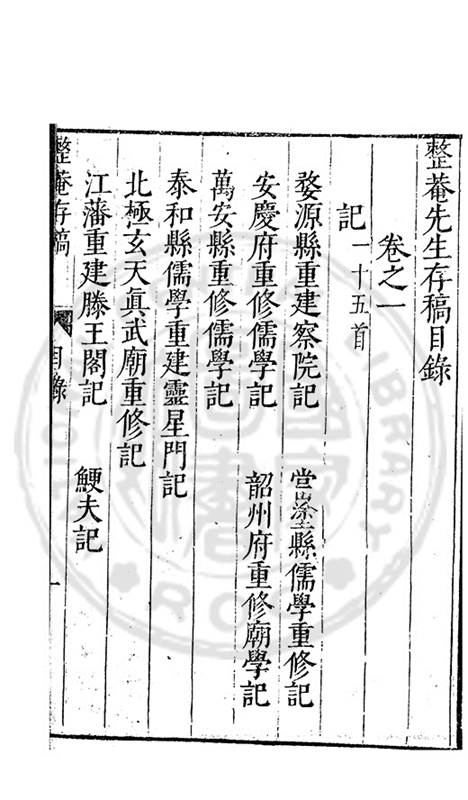 整菴先生存稿目錄
卷之一
記一十五首
婺源縣重建察院記 當塗縣儒學重修記
安慶府重修儒學記 韶州府重修廟學記
萬安縣重修儒學記
泰和縣儒學重建靈星門記
北極玄天真武廟重修記
江藩重建滕王閣記 鯁夫記
整菴存稿 目錄 一
LIBRARY